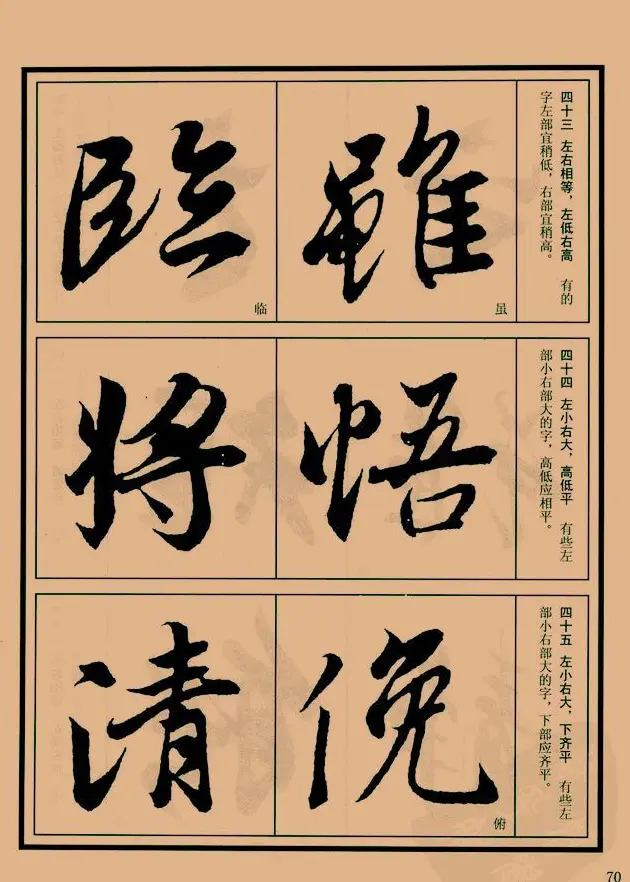 四十三 左右相等，左低右高 有的
字左部宜稍低，右部宜稍高。
雖
虽
臨
临
四十四 左小右大，高低平 有些左
部小右部大的字，高低应相平。
悟
將
四十五 左小右大、下齐平 有些左
部小右部大的字，下部应齐平。
俛
俯
清
70